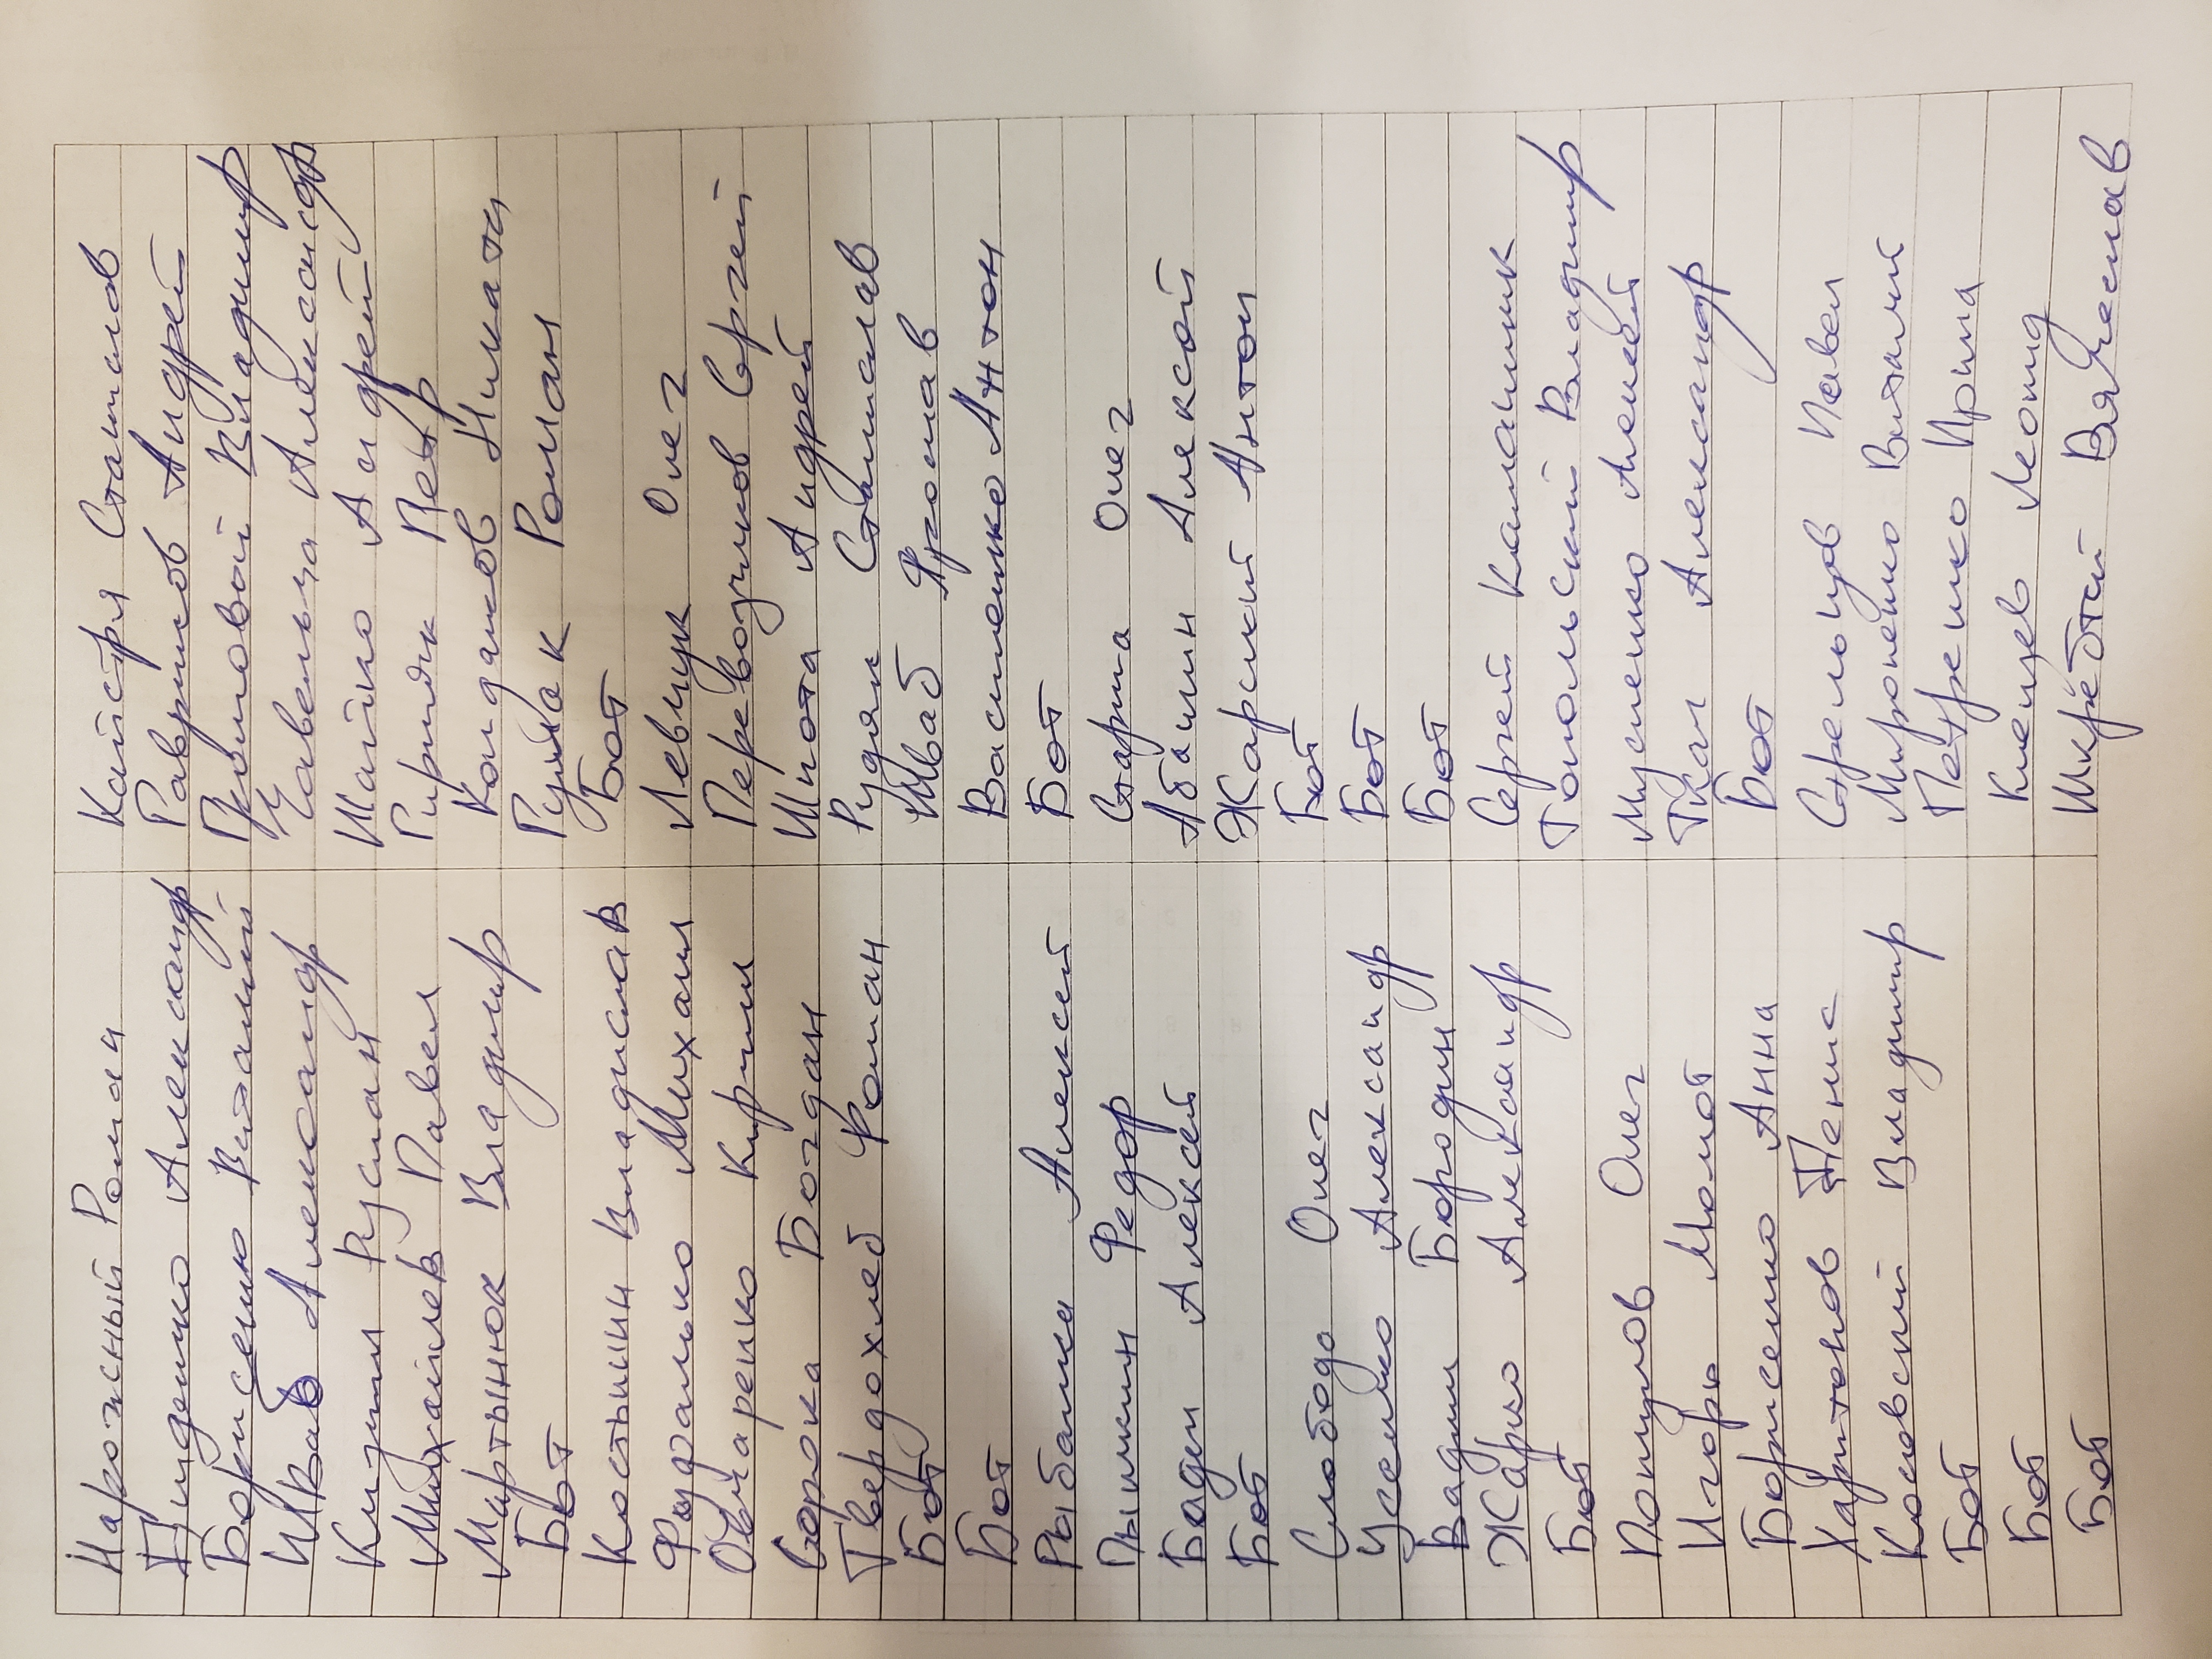 Нарожный Роман
Кайстря Станислав
Александр
Гавриков Андрей
Борисенко Виталий
Громовой Владимир
Шваб Александр
Александр
Кизим Руслан
Шайко Андрей
Михайлев Павел
Гирняк Петр
Мартынюк Владимир
Кондаков Никита
Бот
Гужак Роман
Костышин Владислав
Бот
Михаил
Левчук Олег
Овчаренко Кирилл
Перевозчиков Сергей
Сорока Богдан
Шпота Андрей
Твердохлеб Роман
Рудяк Станислав
Бот
Шваб Ярослав
Бот
Василенко Антон
Рыбалка Алексей
Бот
Пышкин Федор
Олег
Бадеи Алексей
Абашин Алексей
Бот
Жарский Антон
Слобода Олег
Бот
Усенко Александр
Бот
Вадим Бородин
Бот
Жарко Александр
Сергей Каманчик
Бот
Топольский Владимир
Олег
Мусиенко Алексей
Игорь Момот
Ткач Александр
Борисенко Анна
Бот
Харитонов Денис
Стрельцов Павел
Косовский Владимир
Мироненко Виталий
Бот
Петренко Ирина
Бот
Леонид
Бот
Шкребтий Вячеслав